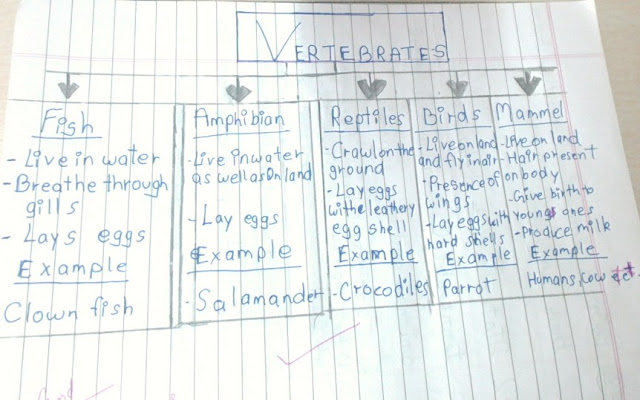 VERTEBRATES
Fish
- Live in water
- Breathe through
gills
- Lays eggs
Example
Clown fish
Amphibian
- Live in water
as well as on land
- Lay eggs
Example
- Salamander
Reptiles
- Crawl on the
ground
- Lay eggs
with e leathery
egg shell
Example
- Crocodiles
Birds
- Live on land
and fly in air
- Presence of
wings
- Lay eggs with
hard shells
Example
Parrot
Mammel
- Live on land
- Hair present
on body
- Give birth to
young ones
- Produce milk
Example
Humans, cow ect.